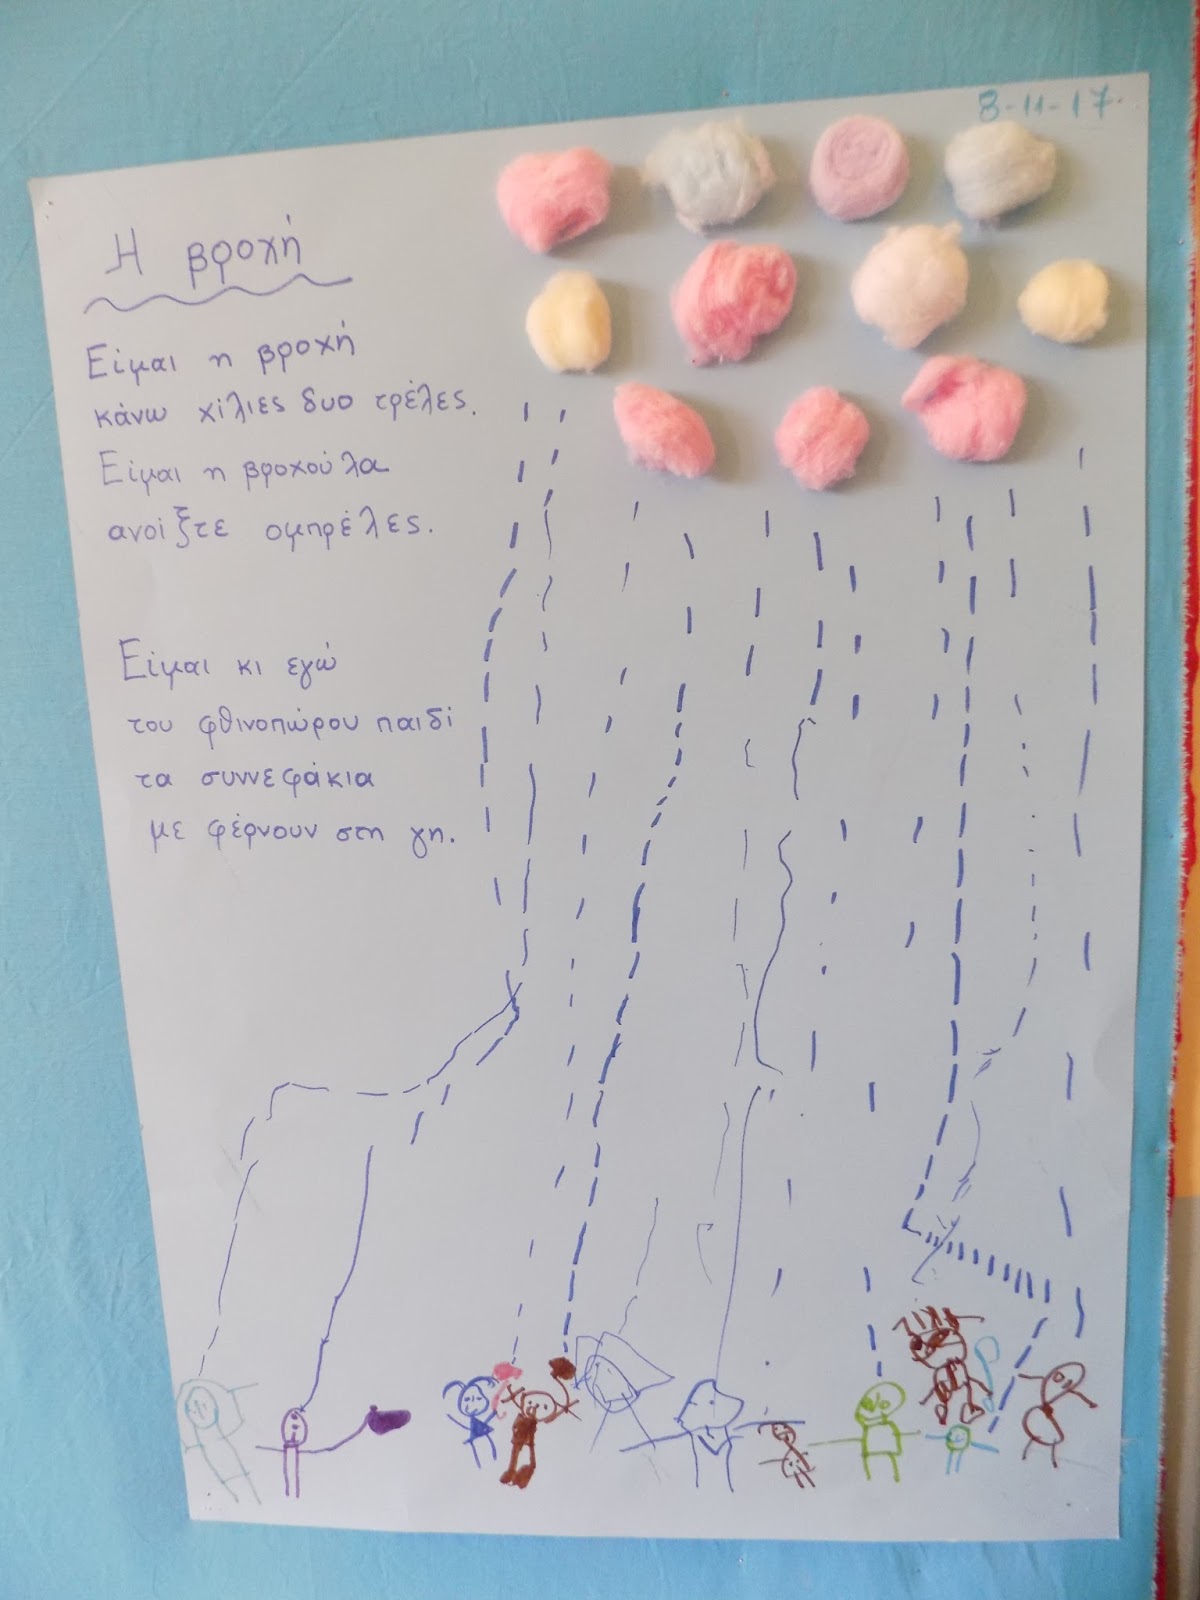 8-11-17.
Η βροχή
Είμαι η βροχή
κάνω χίλιες δυο τρέλες.
Είμαι η βροχούλα
ανοίξτε ομπρέλες.
Είμαι κι εγώ
του φθινοπώρου παιδί
τα συννεφάκια
με φέρνουν στη γη.